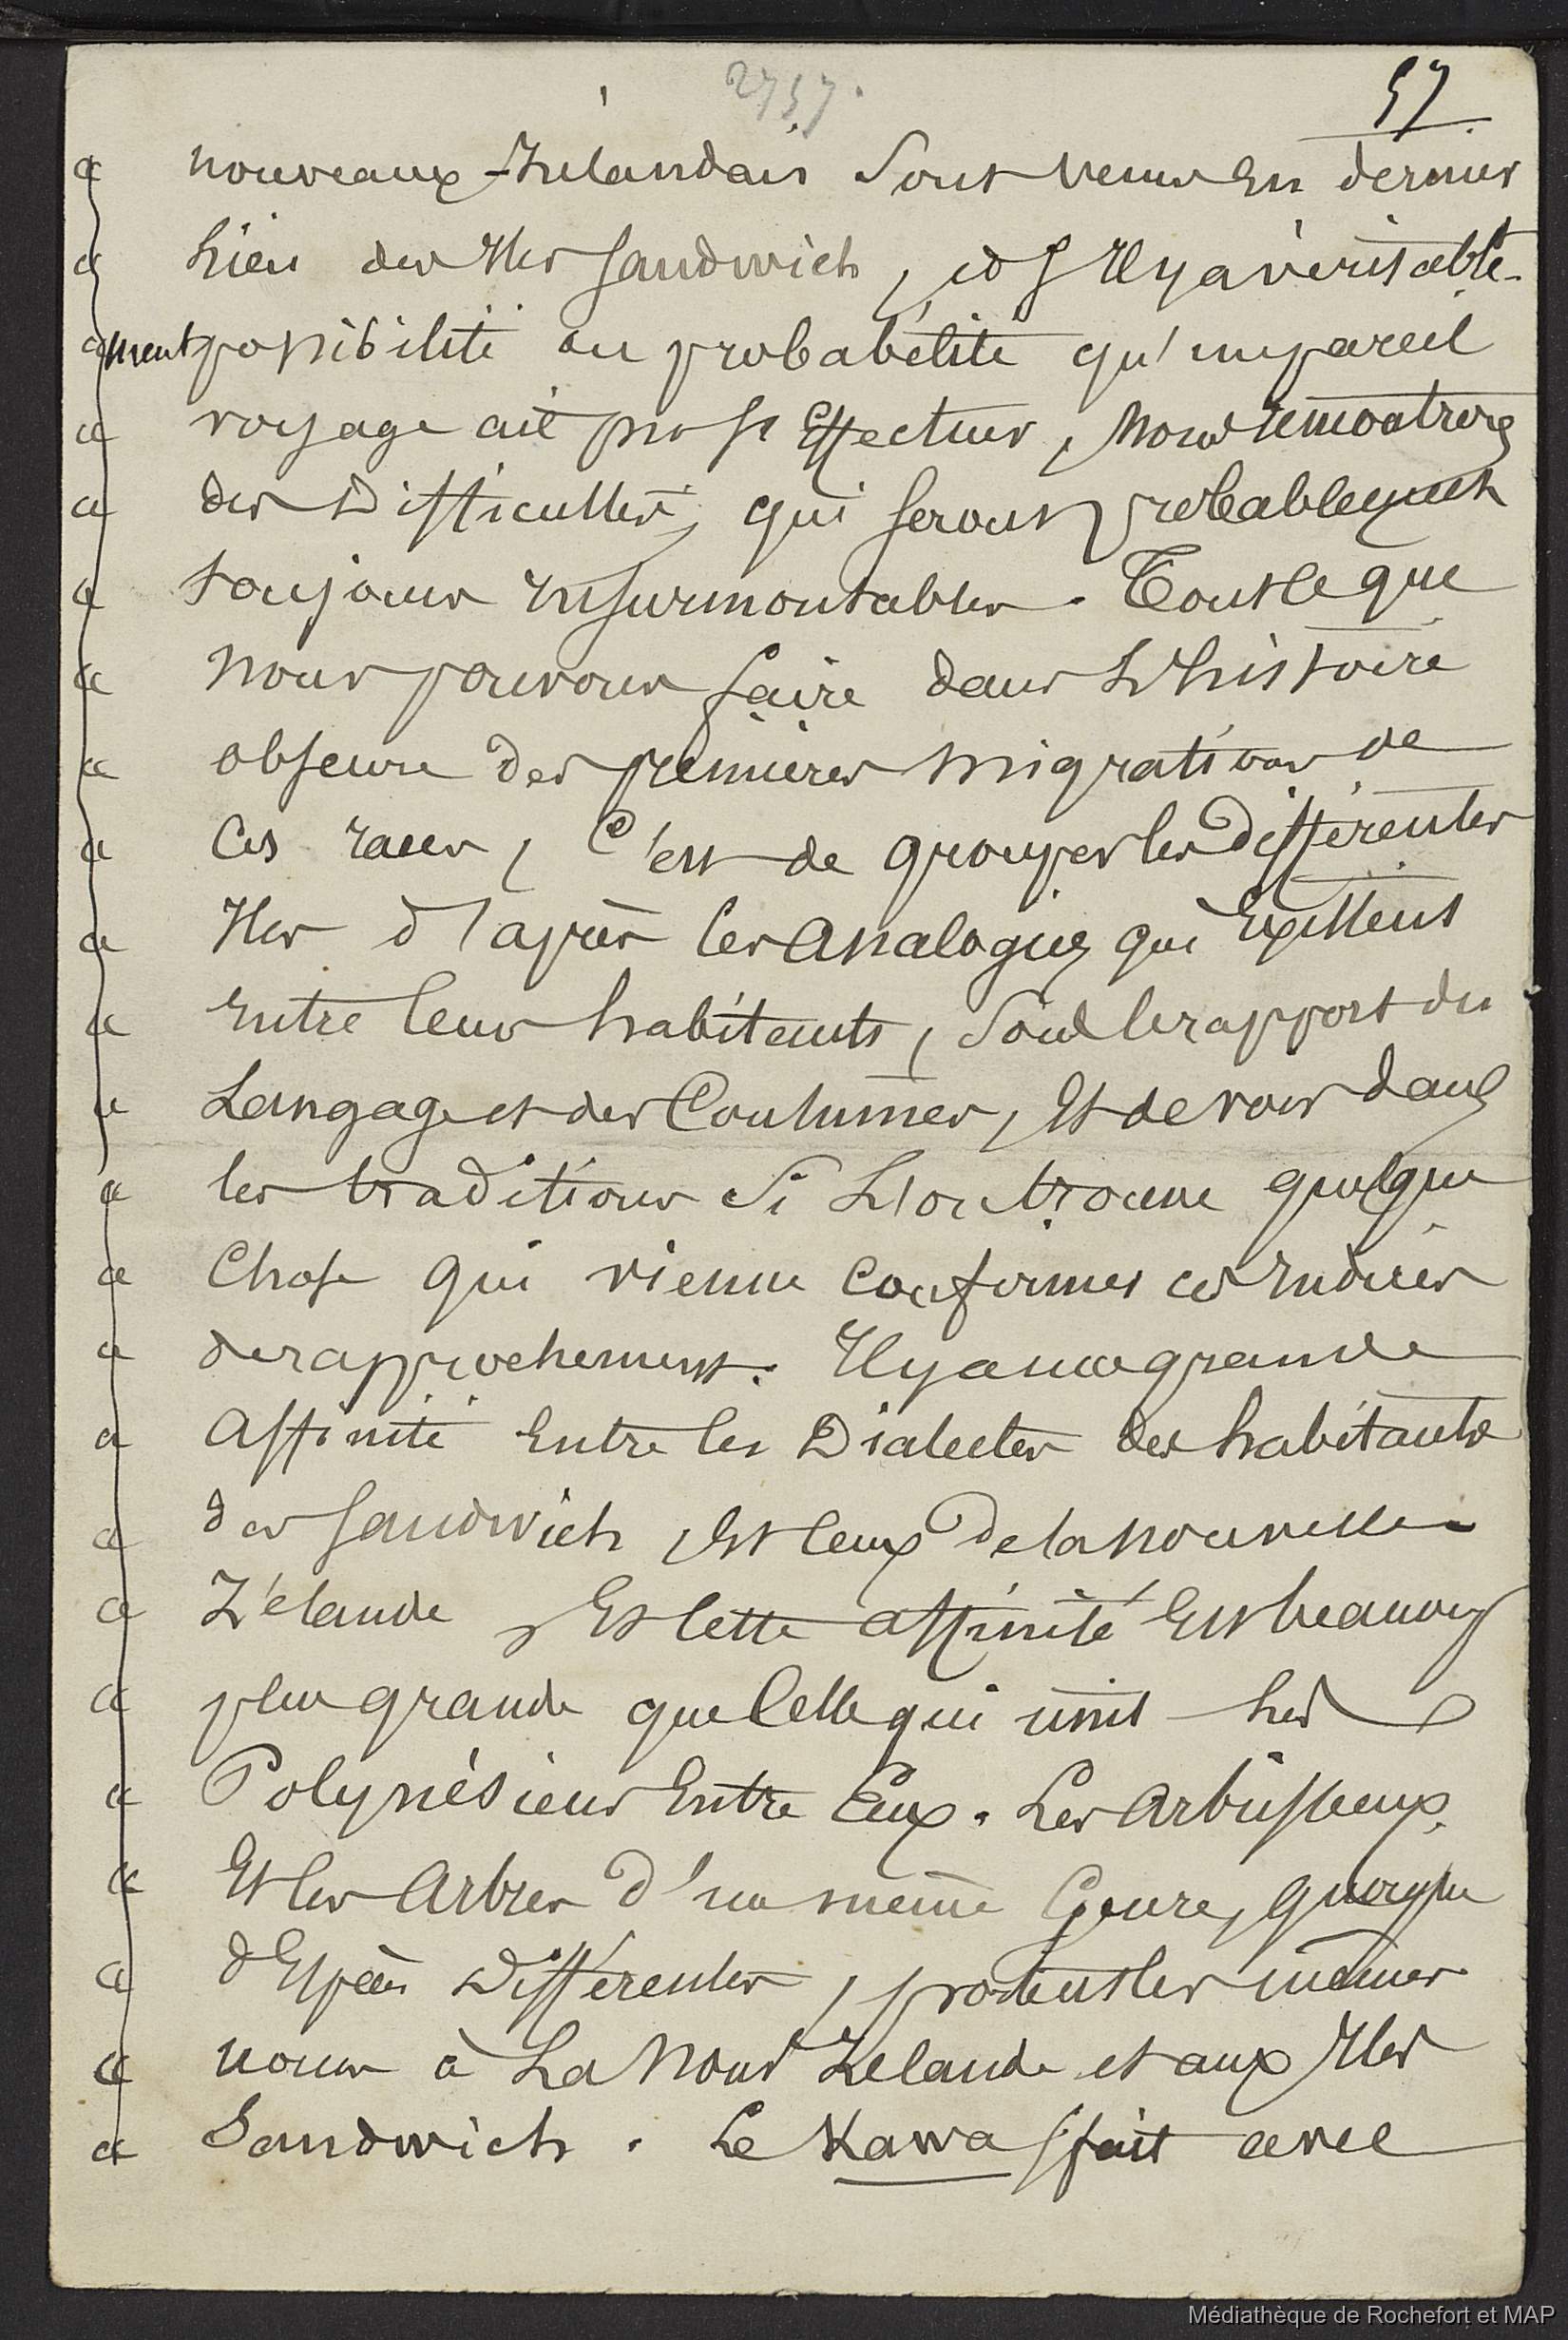 2757.
57
« nouveaux-Zélandais sont venus En dernier
« Lieu des Iles Sandwich, et s'Il y a véritable-
« ment possibilité ou probabilité qu'un pareil
« voyage ait pu s'Effectuer, Nous
« des Difficultés, qui seront probablement
« toujours Insurmontables. Tout Ce que
« Nous pouvons faire dans L'histoire
« obscure des premières Migrations de
« Ces races, C'est de grouper les Différentes
« Iles d'après les Analogies qui Existent
« Entre leurs habitants, Sous le rapport du
« Langage et des Coutumes, Et de voir dans
« les traditions Si L'on trouve quelque
« Chose qui vienne Confirmer ces Indices
« de rapprochement. Il y a une grande
« Affinité Entre les Dialectes des habitants
« des Sandwich, Et Ceux de la Nouvelle
« Zélande, Et Cette affinité Est beaucoup
« plus grande que Celle qui unit Les
« Polynésiens Entre Eux. Les Arbrisseaux
« Et les Arbres d'un même Genre, quoique
« d'Espèces Différentes, portent les mêmes
« noms à La Nouv Zelande et aux Iles
« Sandwich. Le Kawa s'fait avec
Médiathèque de Rochefort et MAP